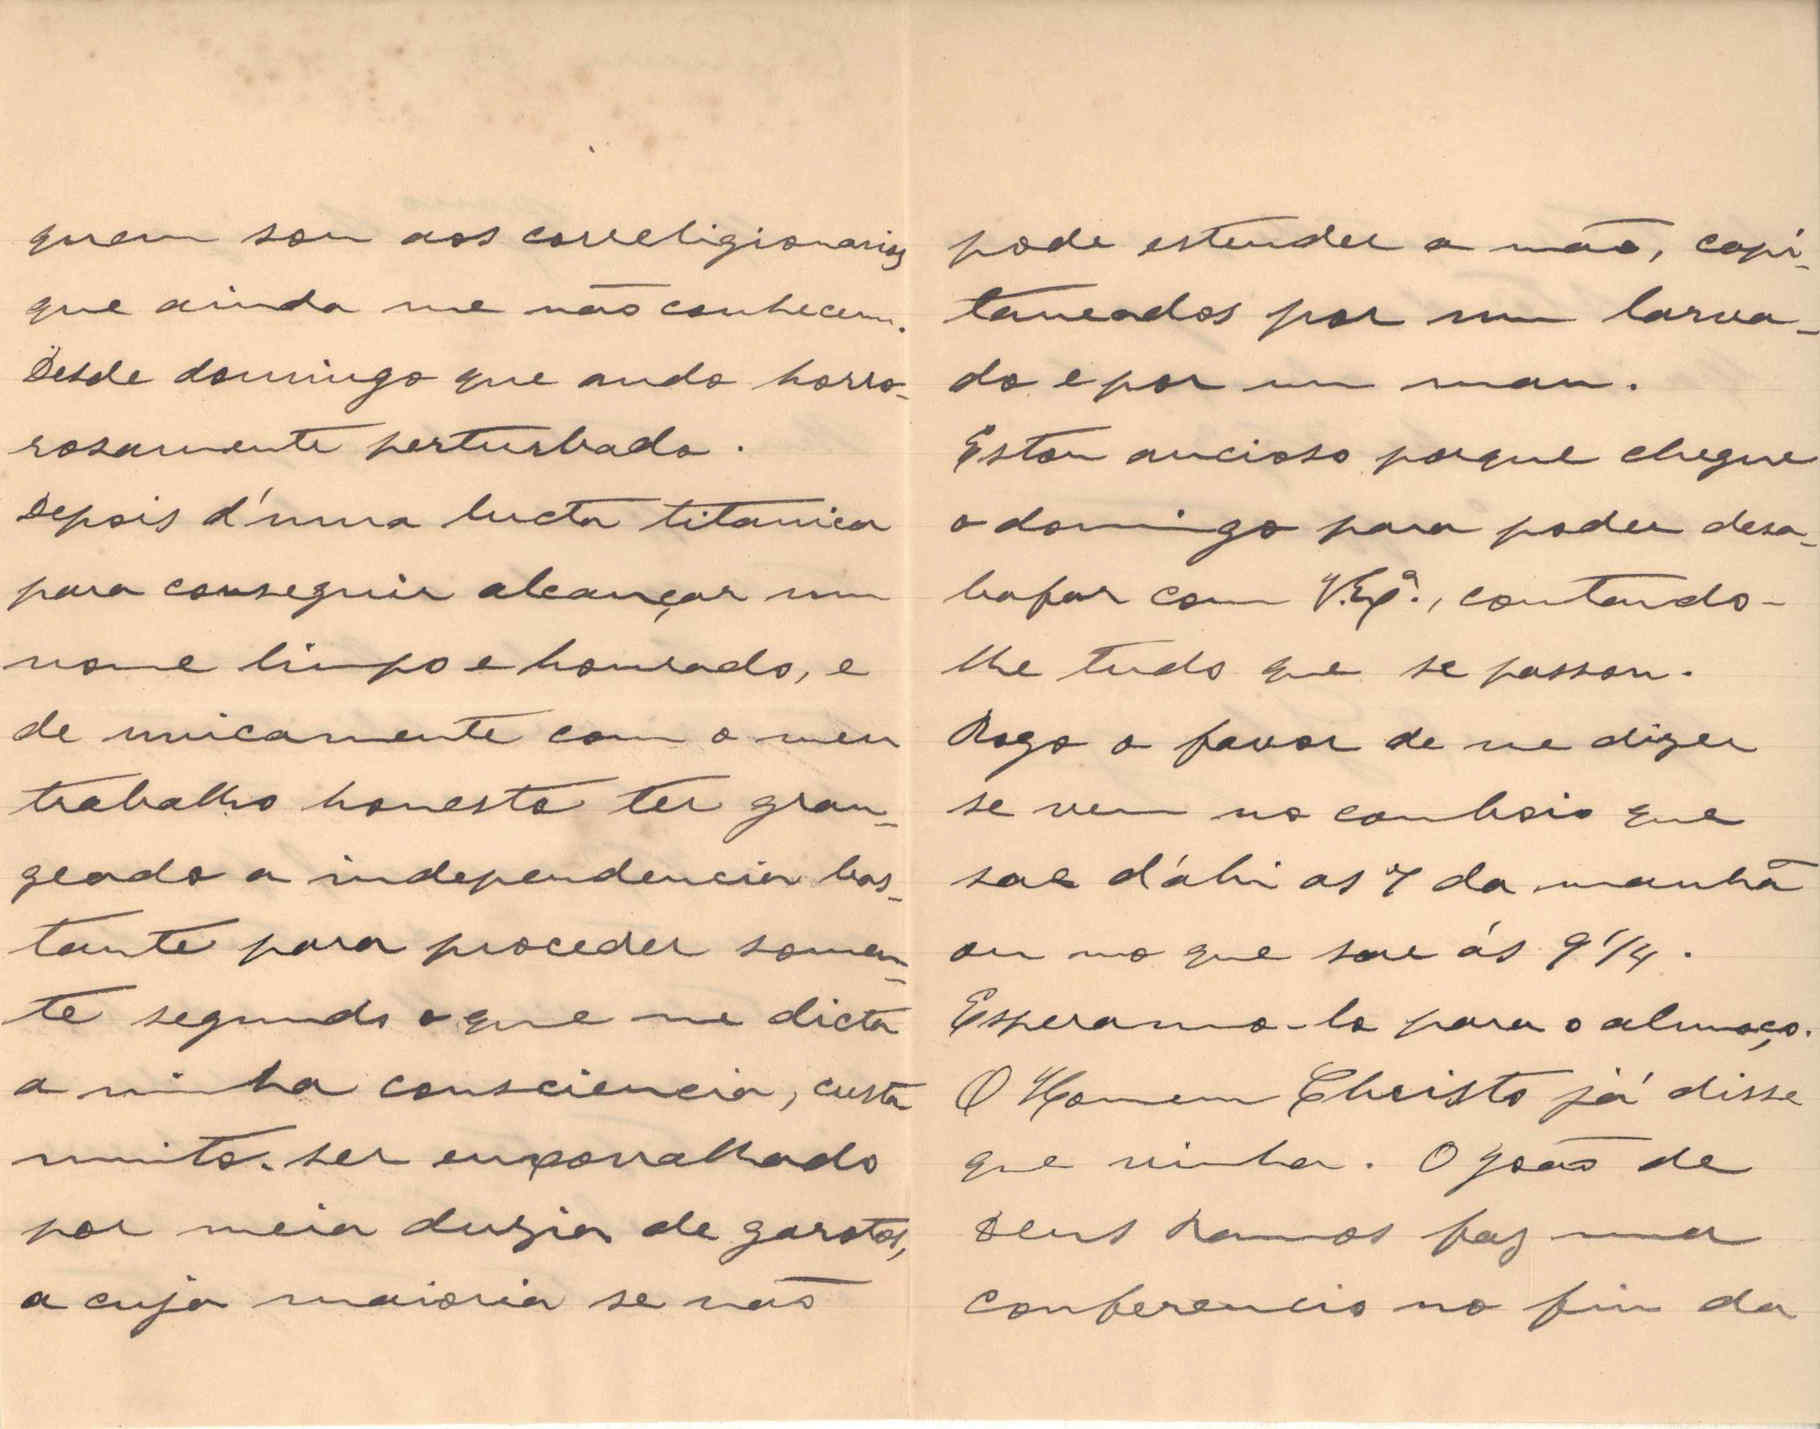 quem sou aos correligionarios
que ainda me não conhecem.
Desde domingo que ando horro-
rosamente perturbado.
Depois d'uma lucta titanica
para conseguir alcançar um
nome limpo e honrado, e
de unicamente com o meu
trabalho honesto ter gran-
geado a independencia bas-
tante para proceder somen-
te segundo o que me dicta
a minha consciencia, custa
muito ser enxovalhado
por meia duzia de garotos,
a cuja maioria se não
pode estender a mão, capi-
taneados por um larva-
do e por um mau.
Estou ancioso porque chegue
o domingo para poder desa-
bafar com V. Exª., contando-
lhe tudo que se passou.
Rogo o favor de me dizer
se vem no comboio que
sae d'ahi as 7 da manhã
ou no que sae ás 9 1/4.
Esperamo-lo para o almoço.
O Homem Christo já disse
que vinha. O João de
Deus Ramos faz uma
conferencia no fim da